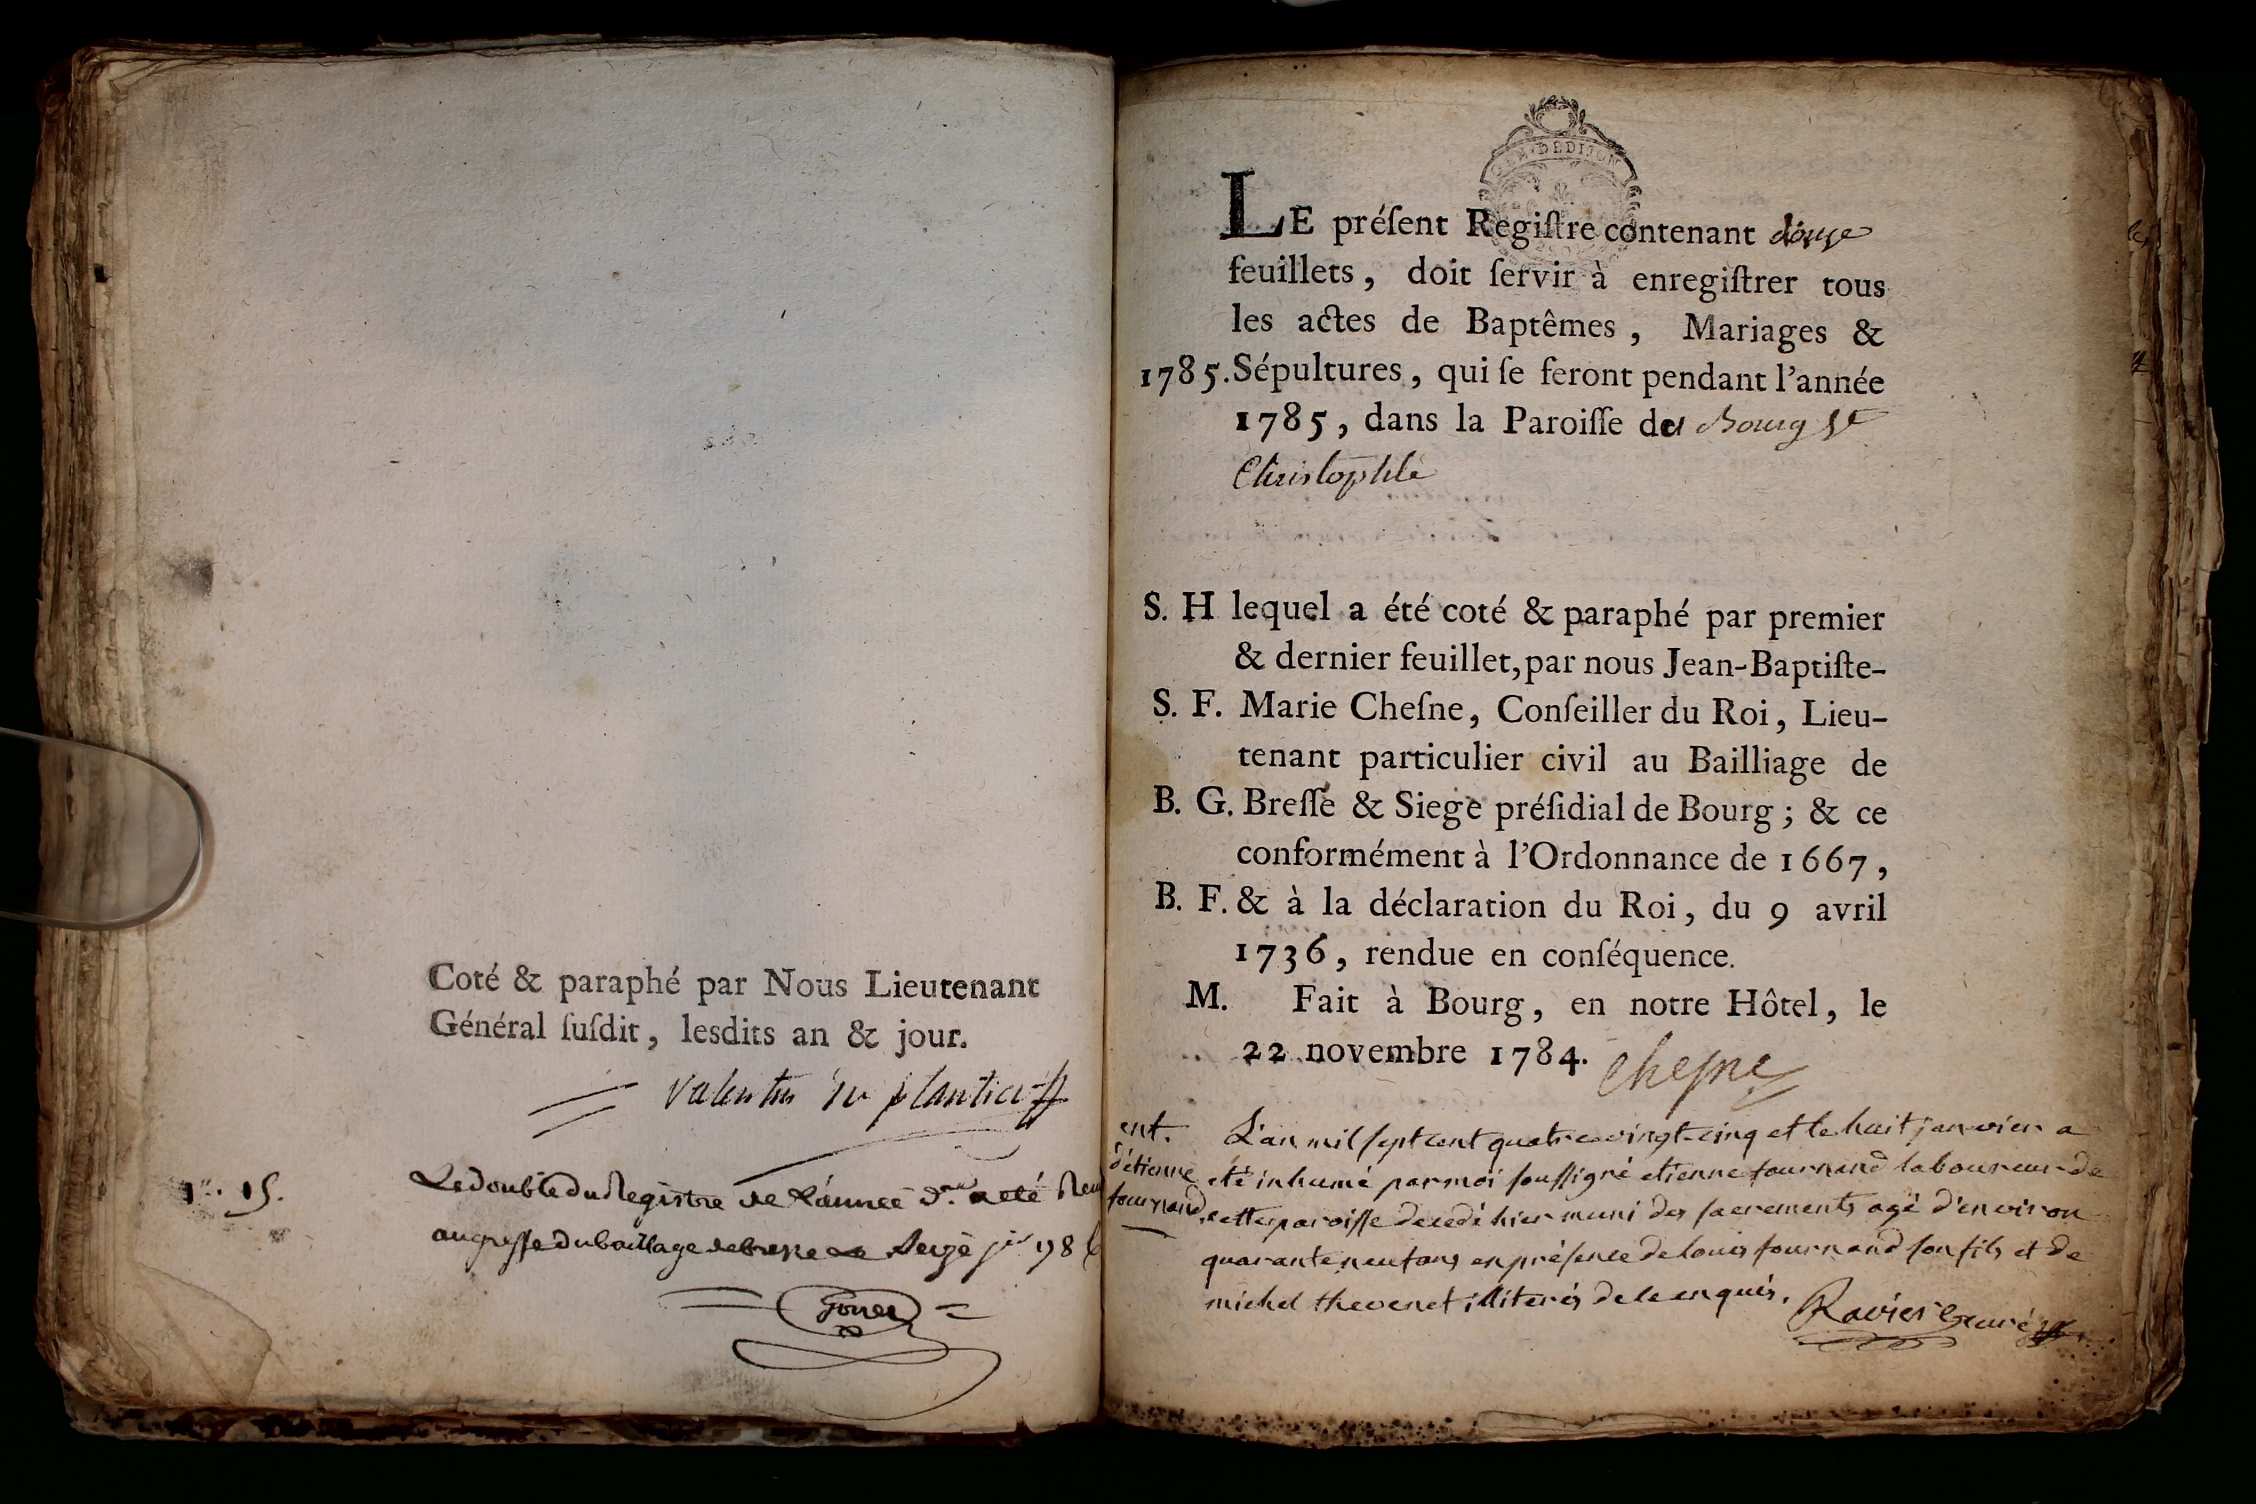 Coté & paraphé par Nous Lieutenant
Général ſuſdit, lesdits an & jour.
Valentin du plantier
1er. 15.
Le double du Registre de l'année dre a eté
au greffe du bailliage de bresse le Seize jer 178
Goner
GEN. DE DIJON
LE préſent Regiſtre contenant douze
feuillets, doit ſervir à enregiſtrer tous
les actes de Baptêmes, Mariages &
1785. Sépultures, qui ſe feront pendant l'année
1785, dans la Paroiſſe de Bourg St
Christophle
S. H lequel a été coté & paraphé par premier
& dernier feuillet, par nous Jean-Baptiſte-
S. F. Marie Cheſne, Conſeiller du Roi, Lieu-
tenant particulier civil au Bailliage de
B. G. Breſſe & Siege préſidial de Bourg; & ce
conformément à l'Ordonnance de 1667,
B. F. & à la déclaration du Roi, du 9 avril
1736, rendue en conſéquence.
M. Fait à Bourg, en notre Hôtel, le
22 novembre 1784. Cheſne
ent. L'an mil ſept cent quatre vingt-cinq et le huit janvier a
d'étienne eté inhumé par moi ſouſſigné etienne fournand laboureur de
fournand cette paroiſſe decedé hier muni des ſacrements agé d'environ
quarante neuf ans en préſence de louis fournand ſon fils et de
michel thevenet illiterés de ce enquis. Ravier curé